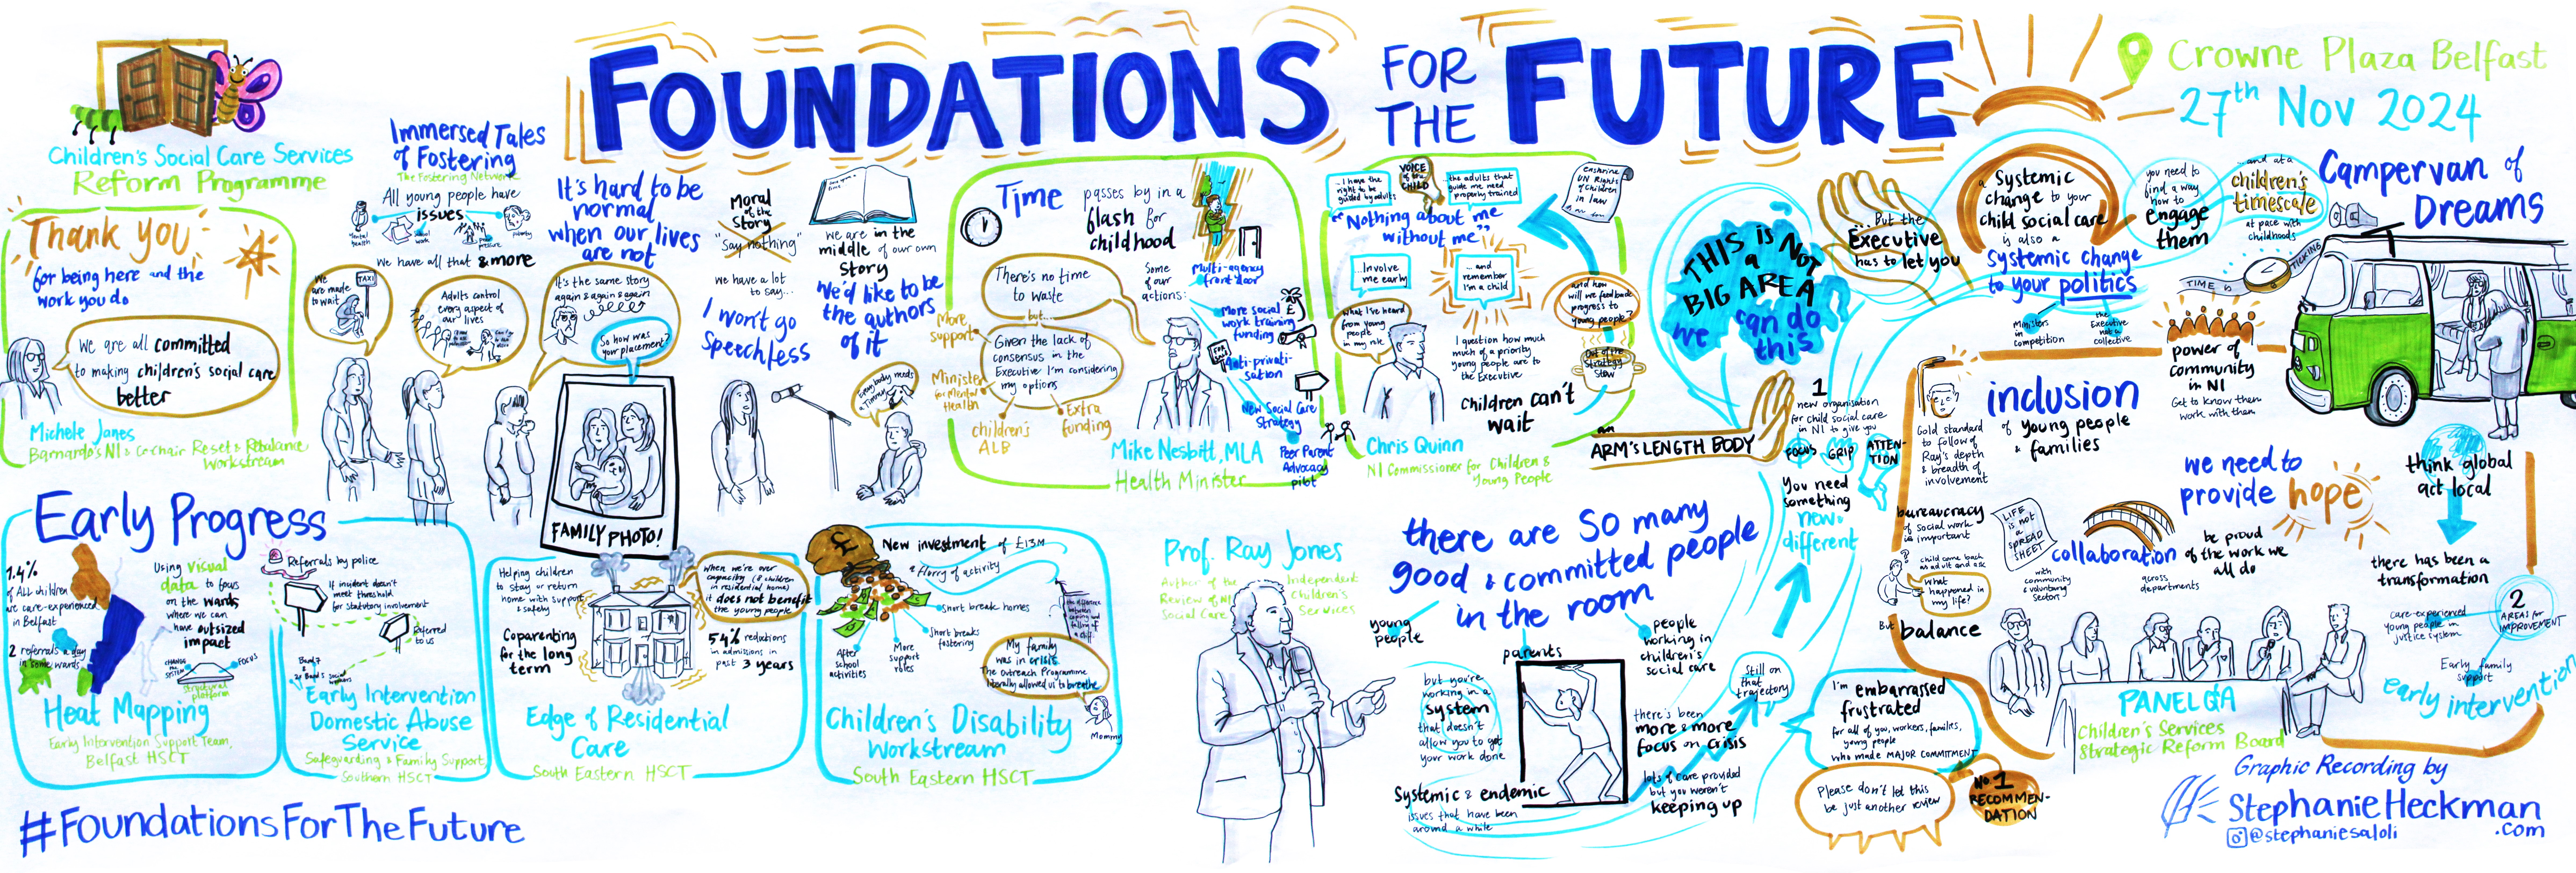 FOUNDATIONS
FOR
THE
FUTURE
Crowne Plaza Belfast
27th Nov 2024
Children's Social Care Services
Reform Programme
Thank you
for being here and the
work you do
We are all committed
to making children's social care
better
Michele Janes
Barnardo's NI & Co-chair Reset & Rebalance
Workstream
Immersed Tales
of Fostering
The Fostering Network
All young people have
issues
Mental
health
peer
pressure
poverty
We have all that & more
We
are made
to wait
TAXI
Adults control
every aspect of
our lives
It's hard to be
normal
when our lives
are not
It's the same story
again & again & again
So how was
your placement?
FAMILY PHOTO!
Moral
of the
Story
"Say nothing"
We have a lot
to say...
I won't go
Speechless
we are in the
middle of our own
Story
We'd like to be
the authors
of it
Everybody needs
a Timmy
Time
passes by in a
flash for
childhood
There's no time
to waste
but...
Given the lack of
consensus in the
Executive I'm considering
my options
More
support
Minister
for Mental
Health
children's
ALB
Extra
funding
Some
of our
actions:
Multi-agency
front door
More social
work training
funding
Anti-privati-
sation
New Social Care
Strategy
Peer Parent
Advocacy
pilot
Mike Nesbitt, MLA
Health Minister
...I have the
right to be
guided by adults
VOICE
of the
CHILD
...the adults that
guide me need
properly trained
enshrine
UN Rights
of Children
in law
"Nothing about me
without me"
...Involve
me early
... and
remember
I'm a child
and how
will we feedback
progress to
young people?
What I've heard
from young
people in
my role
I question how much
much of a priority
young people are to
the Executive
Out of the
Strategy
Stew
Children can't
wait
Chris Quinn
NI Commissioner for Children &
Young People
THIS is NOT
a
BIG AREA
we can do
this
...But the
Executive
has to let you
an
ARM'S LENGTH BODY
1
new organisation
for child social care
in NI to give you
FOCUS
GRIP
ATTEN-
TION
You need
something
new.
different
a Systemic
change to your
child social care
is also a
Systemic change
to your politics
Ministers
in
competition
the
Executive
not a
collective
you need to
find a way
how to
engage
them
...and at a
children's
timescale
at pace with
childhoods
TIME is
TICKING
Campervan of
Dreams
power of
community
in NI
Get to know them
work with them
inclusion
of Young people
& families
Gold standard
to follow of
Ray's depth
& breadth of
involvement
we need to
provide hope
think global
act local
bureaucracy
of social work
is important
LIFE is
not a
SPREAD
SHEET
child come back
as adult and ask
What
happened in
my life?
But balance
collaboration
with
community
& voluntary
sector
across
departments
be proud
of the work we
all do
there has been a
transformation
2
AREAS for
IMPROVEMENT
care-experienced
young people in
justice system
Early family
support
early intervention
PANEL Q&A
Children's Services
Strategic Reform Board
Early Progress
1.4%
of ALL children
are care-experienced
in Belfast
2 referrals a day
in some wards
Using visual
data to focus
on the wards
where we can
have outsized
impact
CHANGE
the
SYSTEM
FOCUS
structural
platform
Heat Mapping
Early Intervention Support Team,
Belfast HSCT
Referrals by police
If incident doesn't
meet threshold
for statutory involvement
Referred
to us
Early Intervention
Domestic Abuse
Service
Safeguarding & Family Support
Southern HSCT
Helping children
to stay or return
home with support
& safety
Coparenting
for the long
term
when we're over
capacity (8 children
in residential homes)
it does not benefit
the young people
54% reductions
in admissions in
past 3 years
Edge of Residential
Care
South Eastern HSCT
New investment of £13M
a flurry of activity
Short break homes
Short breaks
fostering
More
support
roles
After
school
activities
My family
was in crisis.
The Outreach Programme
literally allowed us to breathe
Mommy
Children's Disability
Workstream
South Eastern HSCT
Prof. Ray Jones
Author of the
Review of NI
Social Care
Independent
Children's
Services
there are SO many
good & committed people
in the room
young
people
parents
people
working in
children's
social care
but you're
working in a
system
that doesn't
allow you to get
your work done
Systemic & endemic
issues that have been
around a while
there's been
more & more
focus on crisis
lots of care provided
but you weren't
keeping up
Still on
that
trajectory
I'm embarrassed
frustrated
for all of you, workers, families,
young people
who made MAJOR COMMITMENT
Please don't let this
be just another review
No. 1
RECOMMEN-
DATION
#FoundationsForTheFuture
Graphic Recording by
StephanieHeckman
.com
@stephaniesaloli